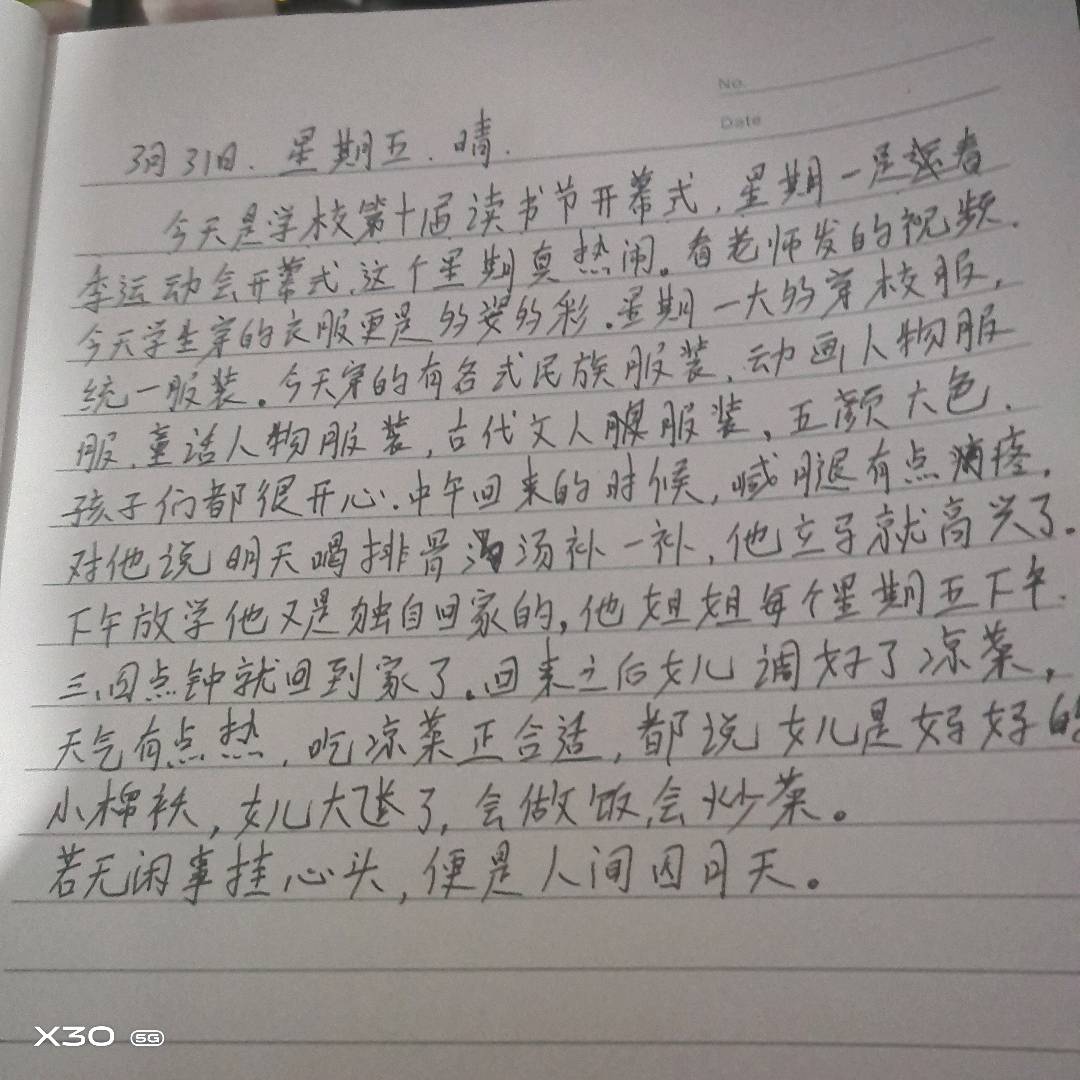 No.
Date
3月31日. 星期五. 晴.
今天是学校第十届读书节开幕式, 星期一是春
季运动会开幕式, 这个星期真热闹。看老师发的视频.
今天学生穿的衣服更是多姿多彩. 星期一大多穿校服,
统一服装。今天穿的有各式民族服装、动画人物服
服、童话人物服装, 古代文人服装、五颜六色.
孩子们都很开心. 中午回来的时候, 喊腿有点疼,
对他说明天喝排骨汤补一补, 他立马就高兴了.
下午放学他又是独自回家的, 他姐姐每个星期五下午.
三、四点钟就回到家了。回来之后女儿调好了凉菜,
天气有点热, 吃凉菜正合适, 都说女儿是好好的
小棉袄, 女儿大了, 会做饭, 会炒菜。
若无闲事挂心头, 便是人间四月天。
X30 5G